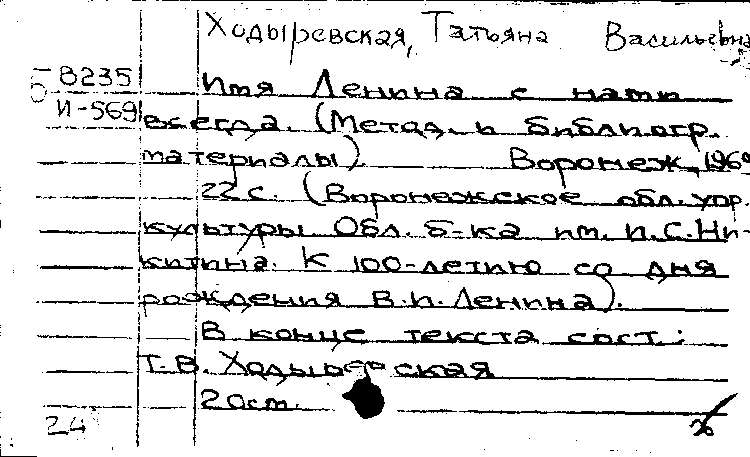 Ходыревская, Татьяна Васильевна
Б В235
И-569
Имя Ленина с нами
всегда. (Метод. и библиогр.
материалы). Воронеж, 1969
22 с. (Воронежское обл. упр.
культуры. Обл. б-ка им. И.С. Ни-
китина. К 100-летию со дня
рождения В.И. Ленина).
В конце текста сост.:
Т.В. Ходыревская
20см.
24